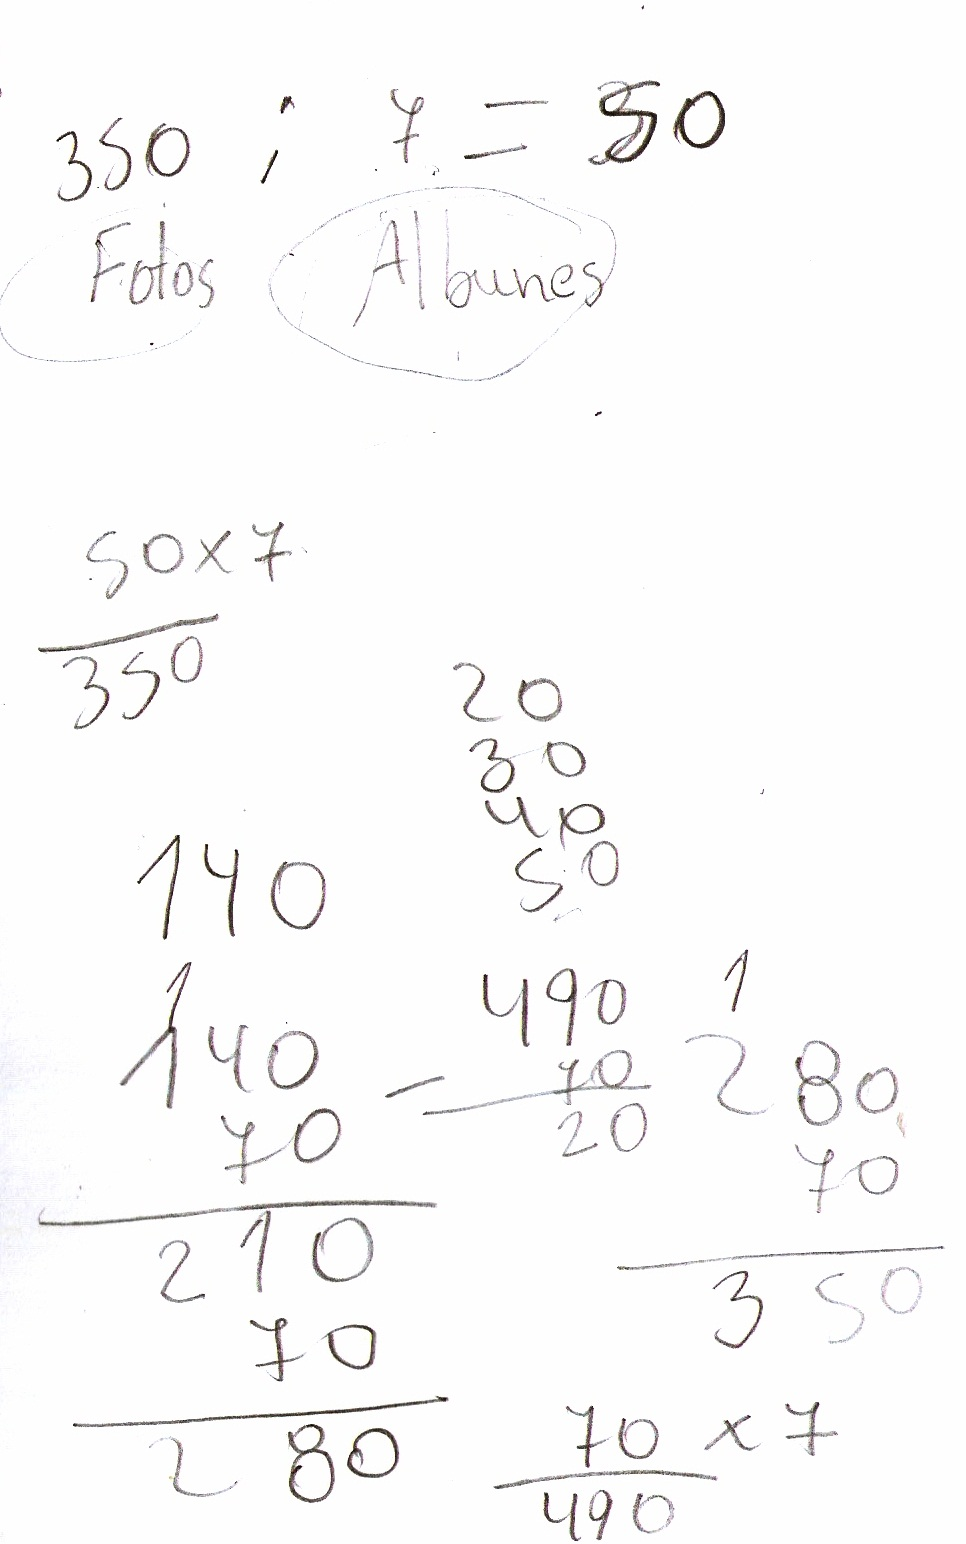 350 : 7 = 50
Fotos Albunes
50x7
350
20
30
40
50
140
1
140
70
210
70
280
490
- 70
20
1
280
70
350
70 x 7
490